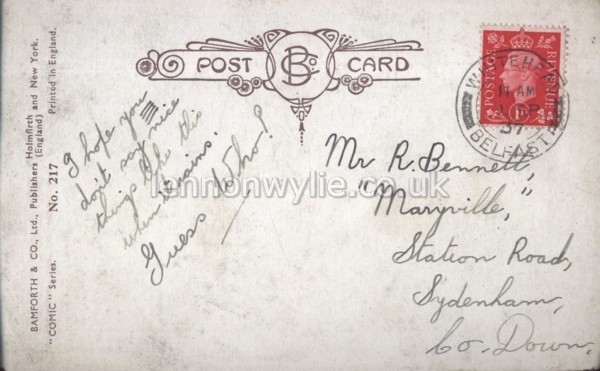 BAMFORTH & CO., Ltd., Publishers Holmfirth and New York.
(England) Printed in England.
"COMIC" Series. No. 217
POST B Co. CARD
POSTAGE REVENUE
1D
11 AM
SP
37
BELFAST
I hope you
don't say nice
things like this
when it rains.
Guess Who?
Mr R. Bennett,
"Maryville,"
Station Road,
Sydenham,
Co. Down.
lennonwylie.co.uk